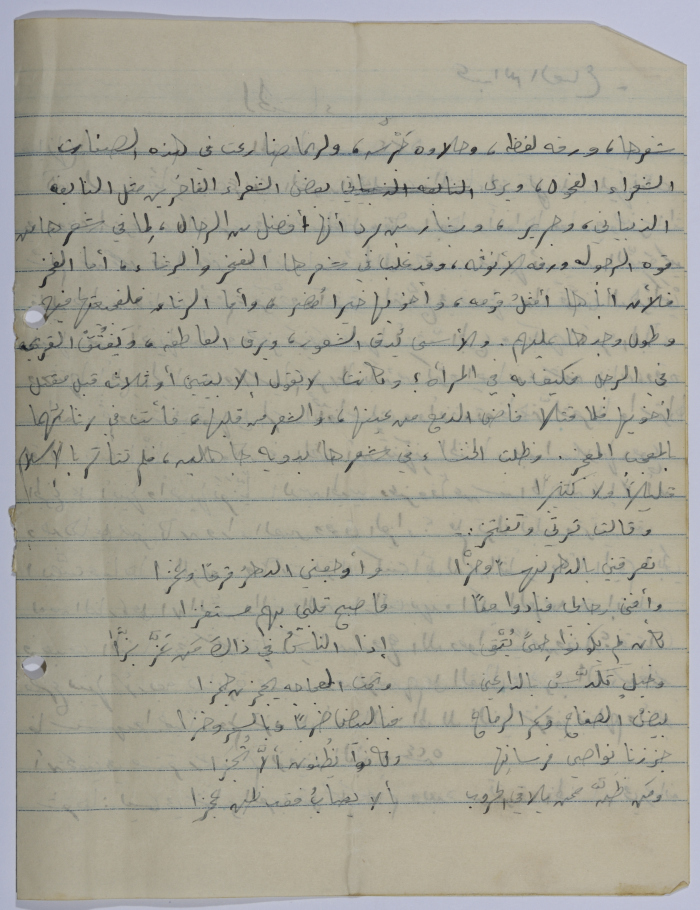 شعرها، ورقه لفظه، وحلاوه جَرْسه، ولربما ضارعت في هذه الصفات
الشعراء الفحول، ويرى النابغه الذبياني بعض الشعراء الفاخرين مثل النابغه
الذبياني، وجرير، وبشار بن برد أنها أفضل من الرجال، لِما في شعرها من
قوه الرجوله ورقه الانوثه، وقد غلب في شعرها الفخر والرثاء، أما الفخر
فلأن أباها أفضلُ قومه، وأخويها خيرا مُضر، وأما الرثاء فلفجيعتها فيهم
وطول وجدها عليهم. والأسى يُدِق الشعور، ويرق العاطفه، ويَفْتُقُ القريحه
في الرجل فكيف به في المرأة؟ وكانت لا تقول إلا البيتين أو ثلاثه قبل مقتل
أخويها فلما قتلا فاض الدمع من عينها، والشعر من قلبها، فأتت في رثائهما
بالعجب المعجز. وظلت الخنساء في شعرها بدويه جاهليه، فلم تتأثر بالاسلام
قليلاً ولا كثيرا
وقالت ترثي وتفتخر:
تعرقني الدهر نهسًا وحزَّا وأوجعني الدهر قرعًا وغمزا
وأفنى رجالي فبادوا معًا فأصبح قلبي بهم مستفزا
كأن لم يكونوا حِمىً يُتَّقى إذا الناسُ في ذاكَ مَن عَزَّ بَزَّا
وخيلٍ تكدَّسُ بالدارعين وتحت العجاجه يجمزن جمزا
ببيض الصفاح وسمر الرماح فبالبيض ضربًا وبالسمر وخزا
جززنا نواصي فرسانها وكانوا يظنون ألاّ تُجزا
ومَن ظنَّ ممن يلاقي الحروب بألا يصابَ فقد ظن عجزا